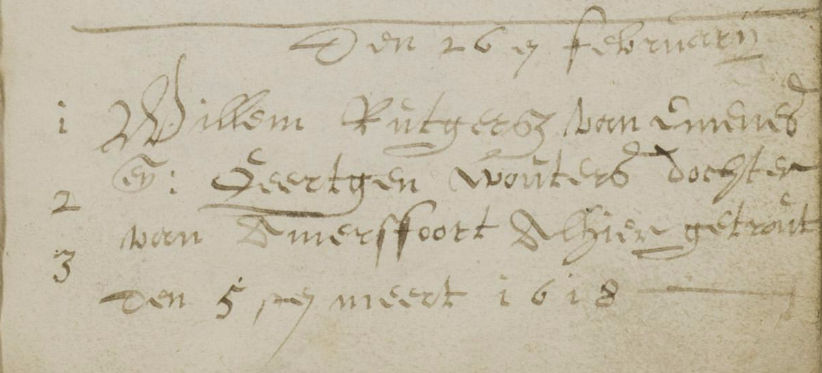 Den 26 en februarij
1 Willem Rutgersz van Emenes
2 en: Geertgen Wouters dochter
3 van Amersffoort Alhier getrout
Den 5 en meert 1618